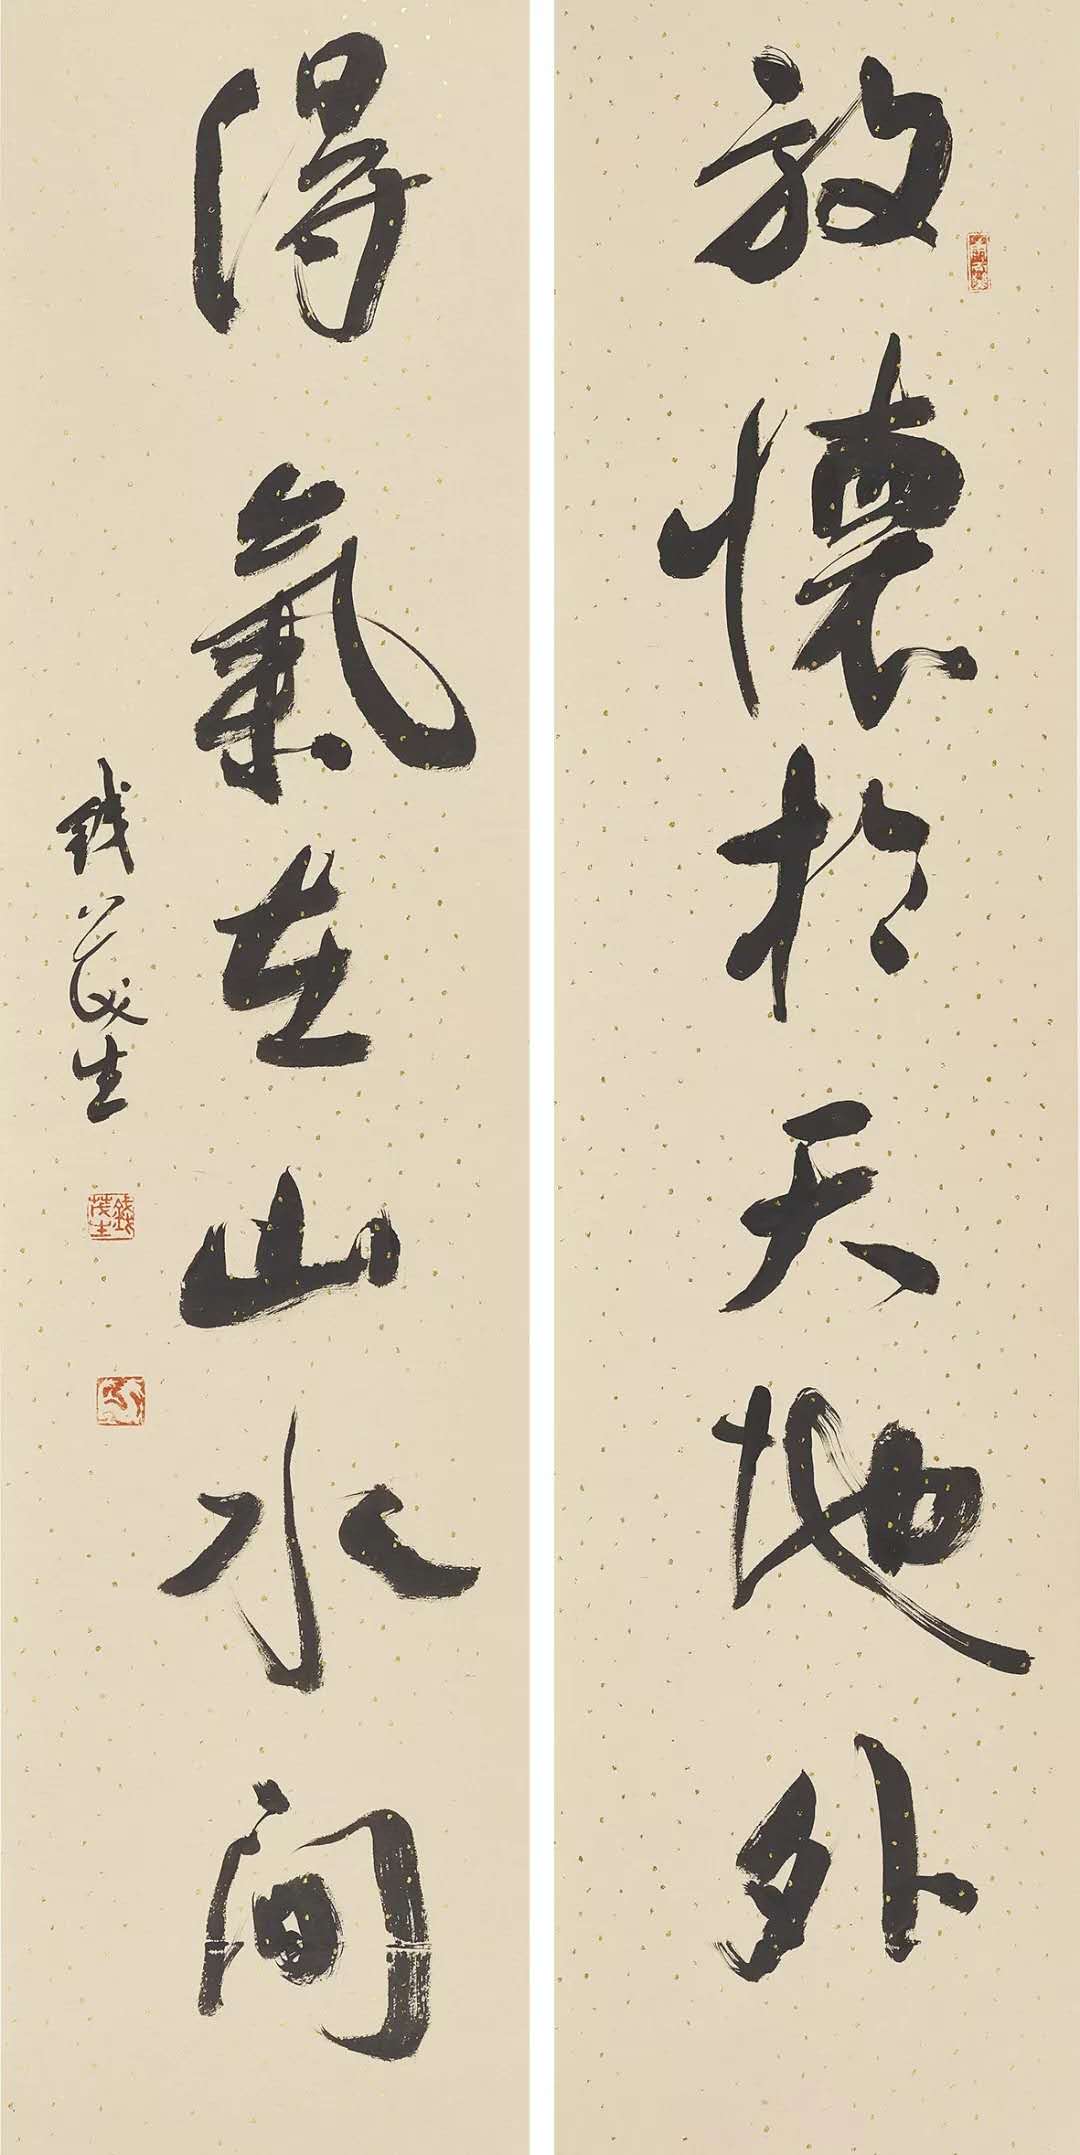 放懷於天地外
得氣在山水間
钱茂生
錢茂生